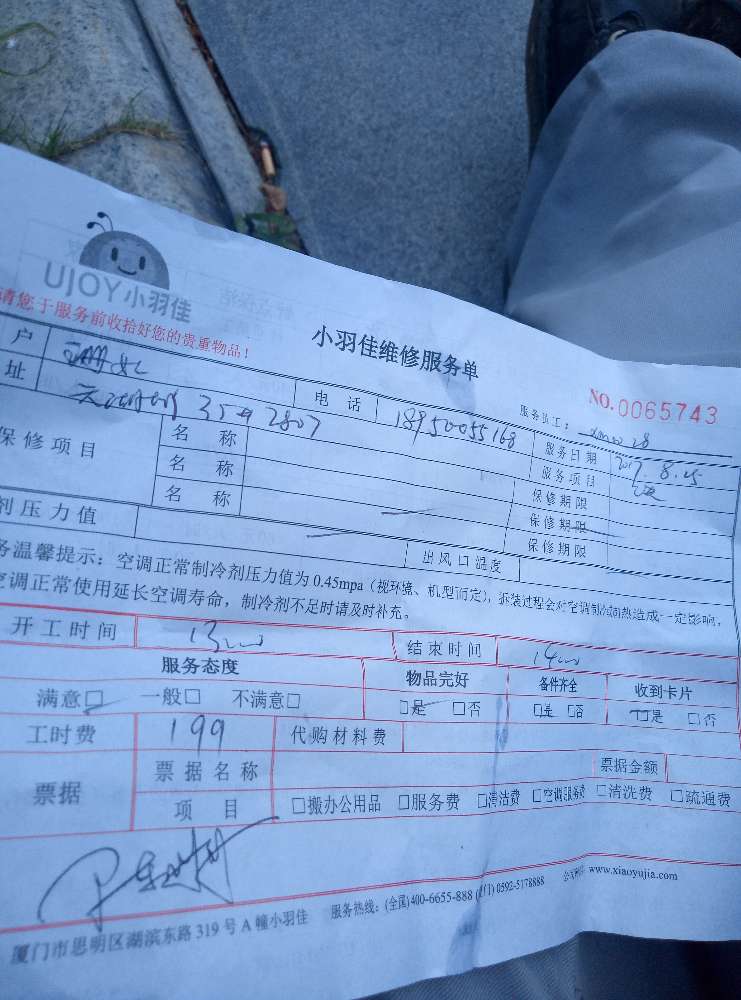 UJOY小羽佳
请您于服务前收拾好您的贵重物品！
小羽佳维修服务单
NO.0065743
服务员工：
户 电话 18950055168 服务日期 2017.8.25
址 3542807 服务项目
保修项目 名称 保修期限
名称 保修期限
名称 保修期限
剂压力值 出风口温度
务温馨提示：空调正常制冷剂压力值为0.45mpa（视环境、机型而定），拆装过程会对空调制冷制热造成一定影响，
空调正常使用延长空调寿命，制冷剂不足时请及时补充。
开工时间 13:00 结束时间 14:00
服务态度 物品完好 备件齐全 收到卡片
满意□ 一般□ 不满意□ □是 □否 □是 □否 □是 □否
工时费 199 代购材料费
票据 票据名称 票据金额
项目 □搬办公用品 □服务费 □清洁费 □空调服务费 □清洗费 □疏通费
厦门市思明区湖滨东路319号A幢小羽佳 服务热线：(全国)400-6655-888 0592-5178888 www.xiaoyujia.com